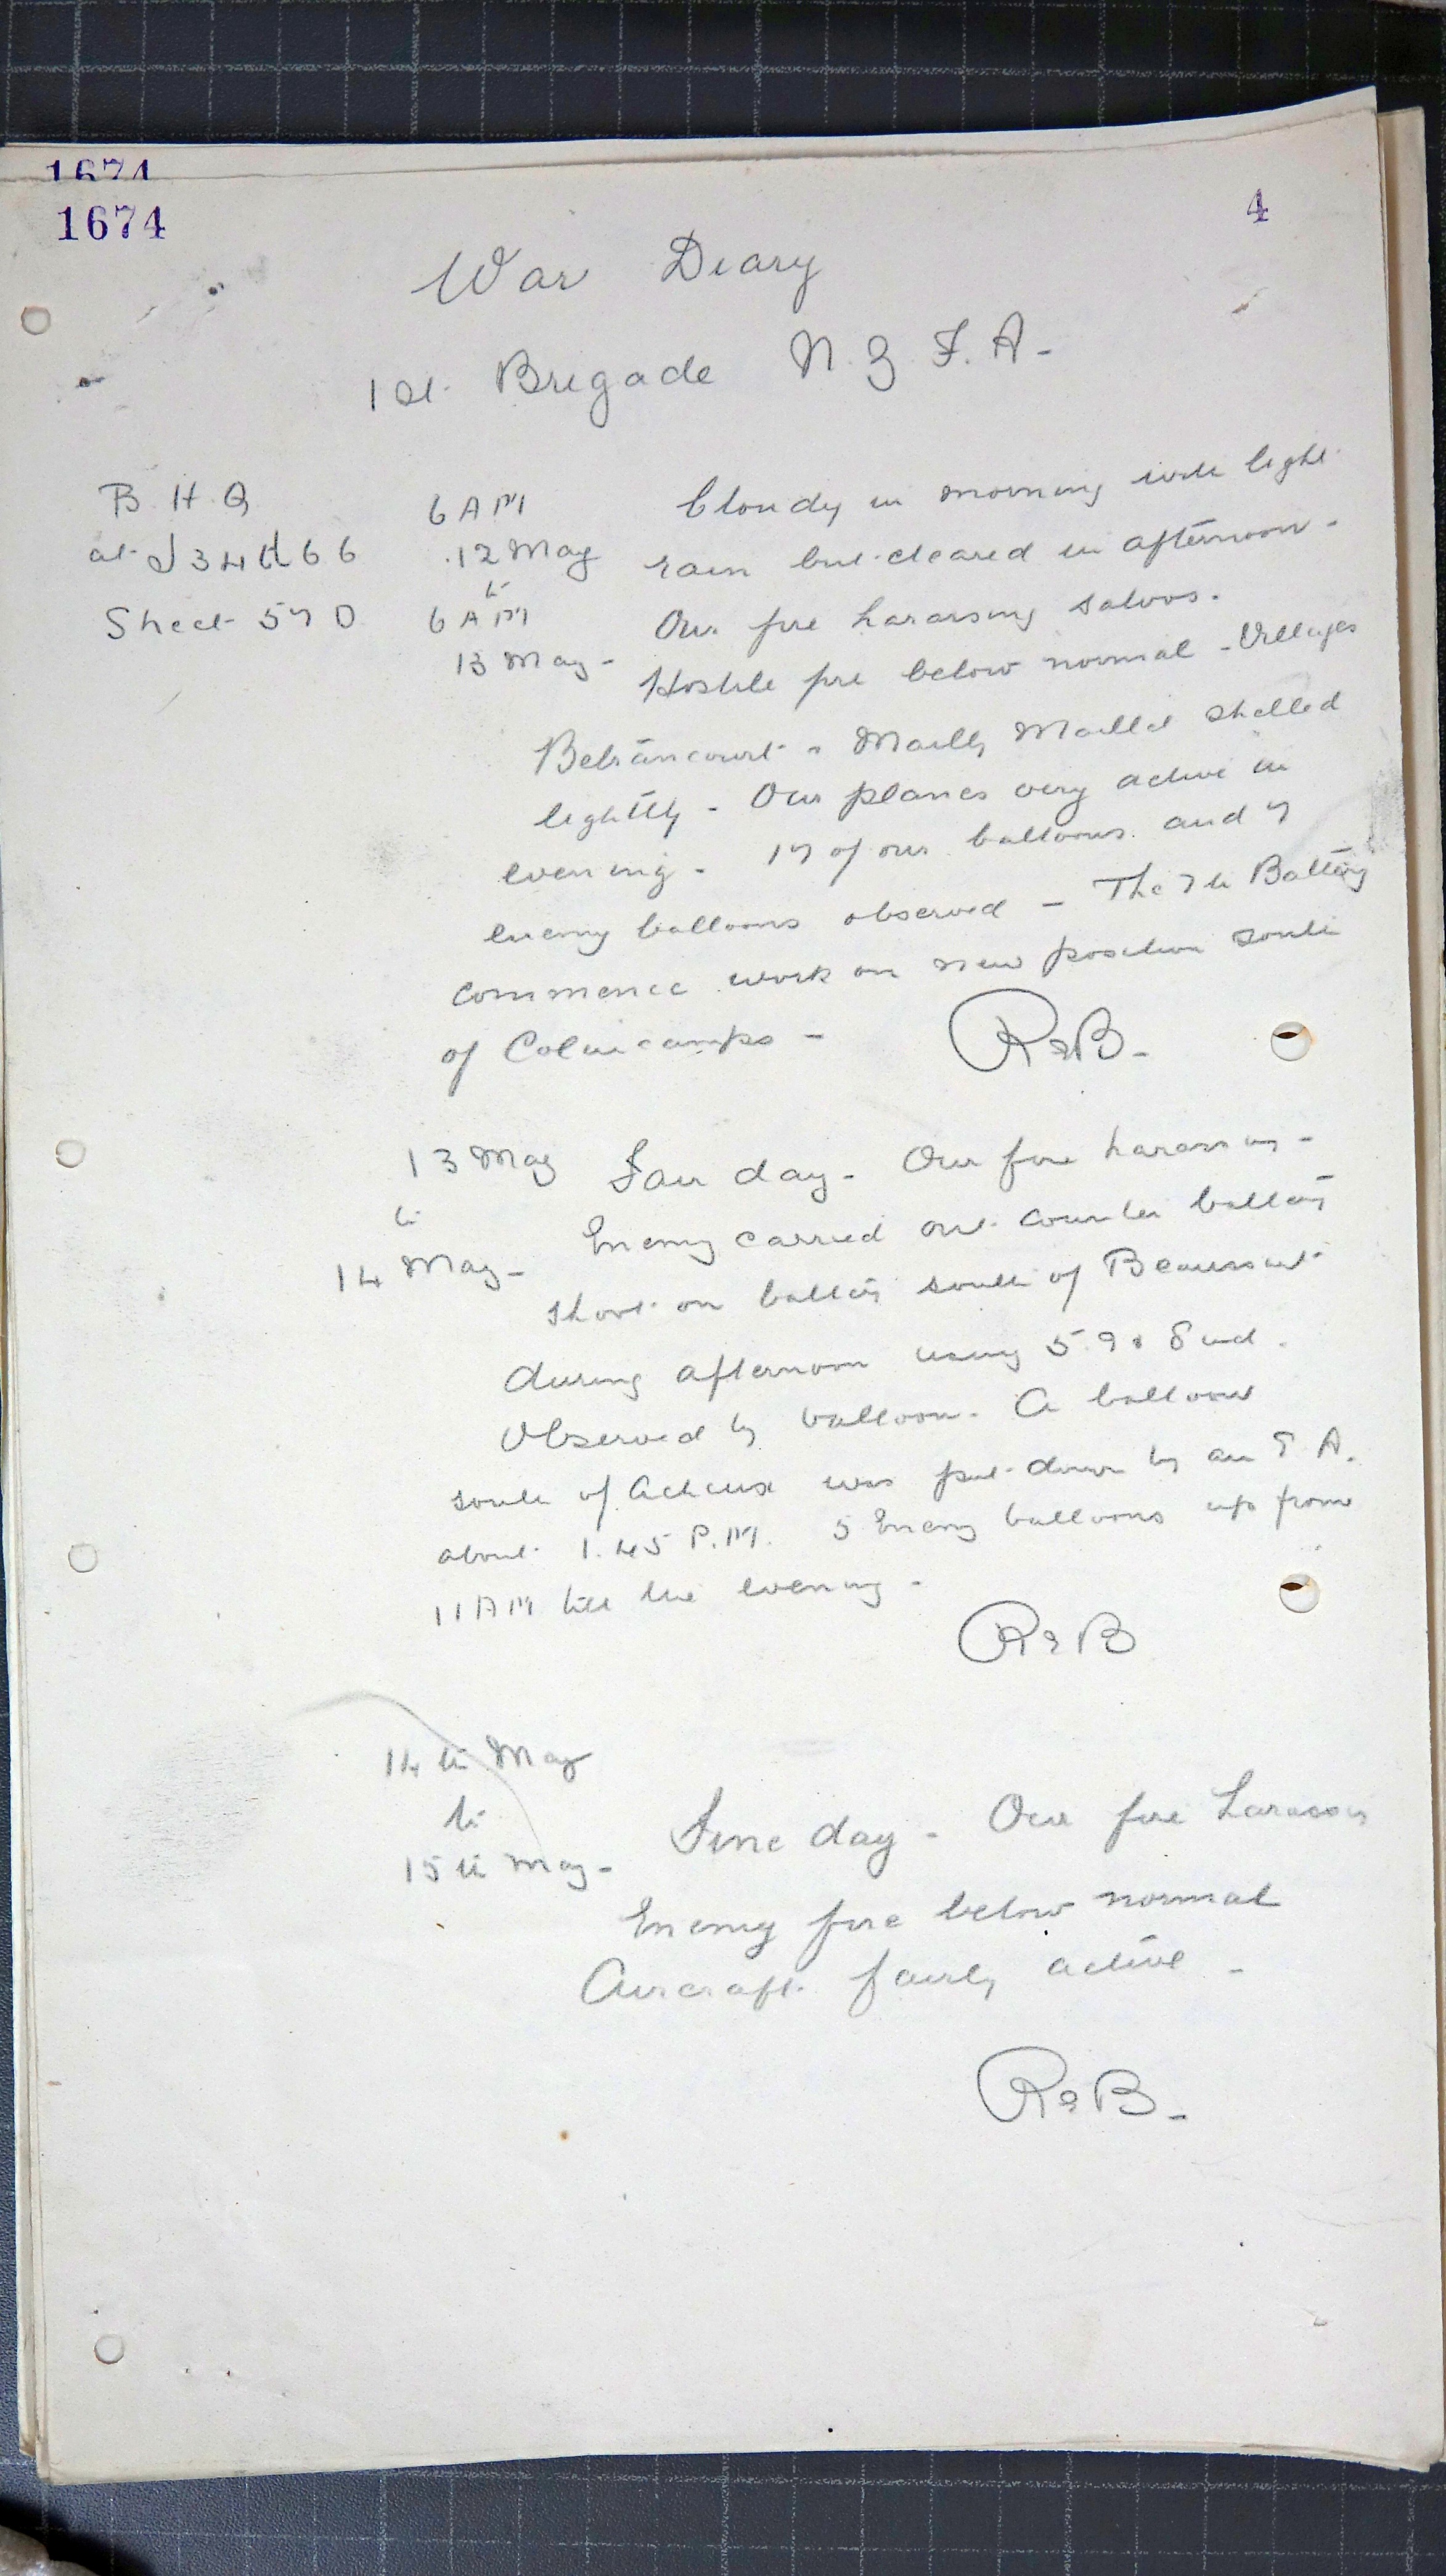 1674
1674
4
War Diary
1st Brigade N.Z.F.A.-
B.H.Q
at J34d66
Sheet 57D
6AM
12 May
to
6AM
13 May-
Cloudy in morning with light
rain but cleared in afternoon-
Our fire harassing salvos.
Hostile fire below normal - Villages
Betrancourt & Mailly Maillet shelled
lightly - Our planes very active in
evening - 17 of our balloons and 7
enemy balloons observed - The 7th Battery
commence work on new position south
of Colincamps -
R&B-
13 May
to
14 May-
Fair day - Our fire harassing -
Enemy carried out counter battery
shoot on battery south of Beaussart
during afternoon using 5.9 & 8 inch.
Observed by balloon. A balloon
south of Acheux was put down by an E A.
about 1.45 P.M. 5 Enemy balloons up from
11 AM till the evening -
R&B
14th May
to
15th May-
Fine day - Our fire harassing
Enemy fire below normal
Aircraft fairly active -
R&B-